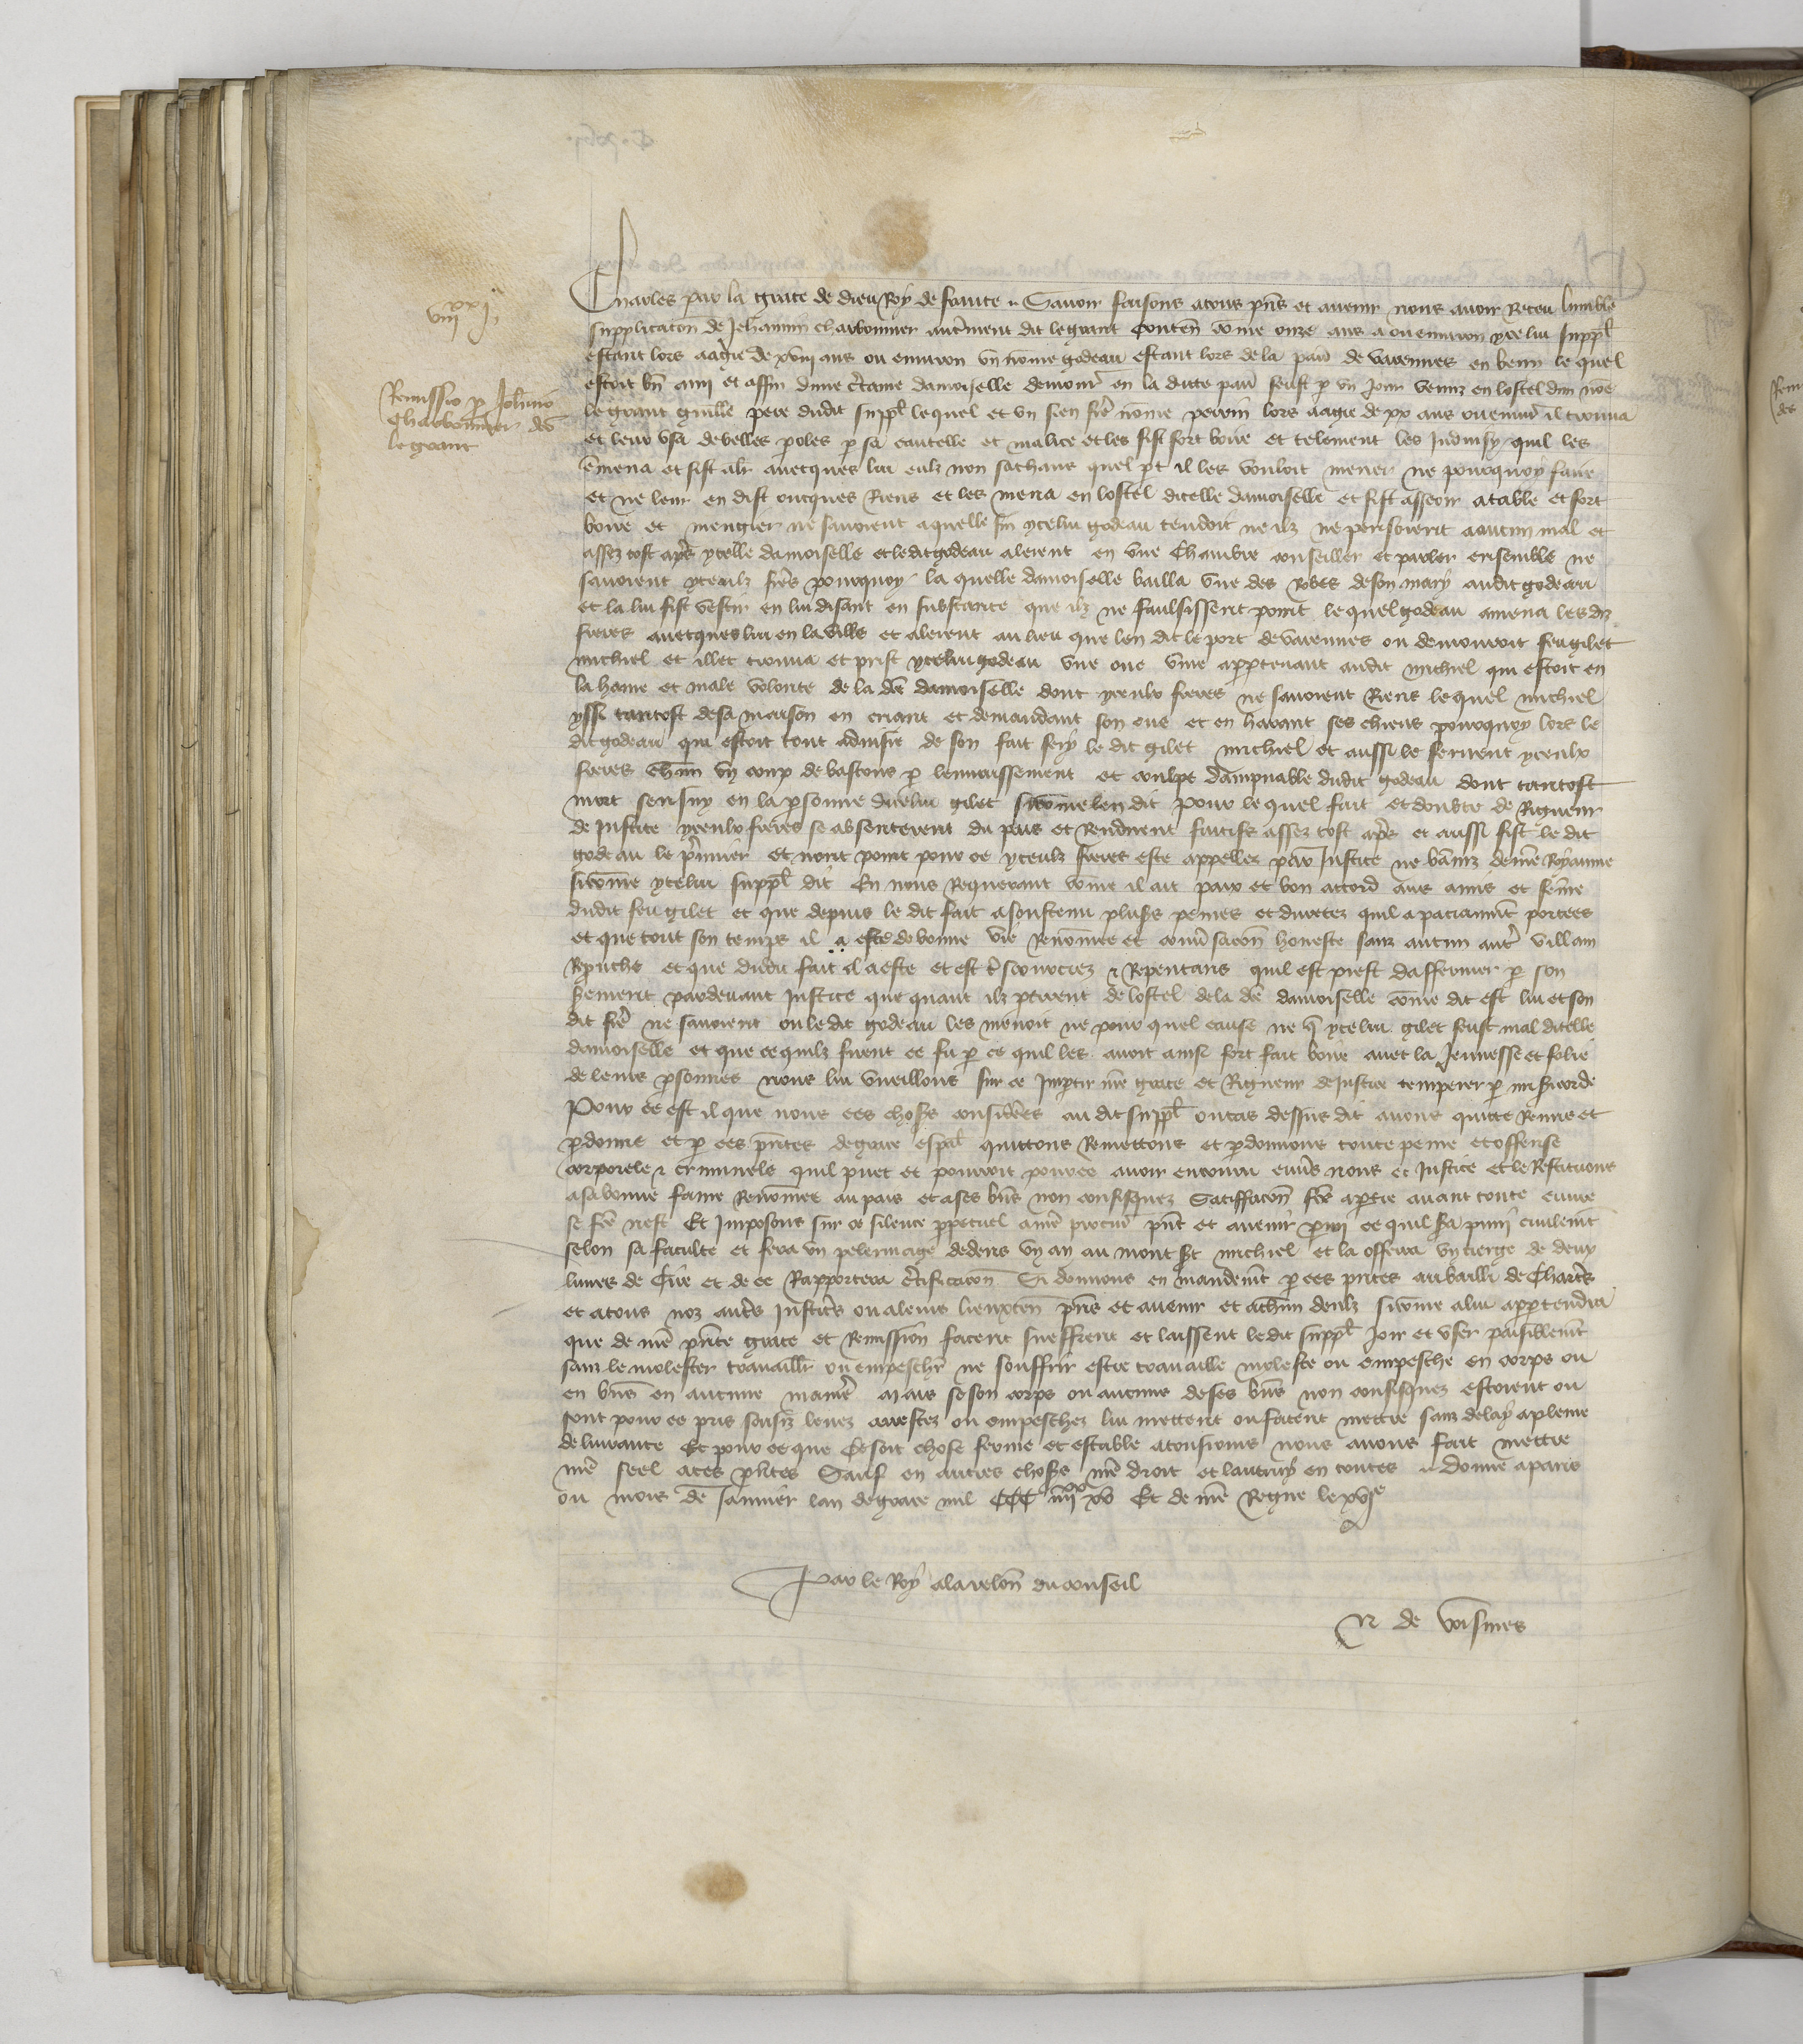 viii xx i
Remissio p Johanno
Charbonnier dco
legrant
Charles par la grace de dieu Roy de france Savoir faisons atous pns et avenir nous avoir Receu lumble
supplicacon de Jehannin charbonnier autrement dit legrant Conten come onze ans a ou environ ycelui suppl
estant lors aagie de xviii ans ou environ un nome godeau estant lors de la parr de varennes en le quel
estoit bn amy et affin dune ctaine damoiselle demour en la dicte parr feust p un jour venuz en lostel dun noe
legrant guille pere dudit suppl lequel et un sien fre nome perrin lors aagie de xx ans ou environ il trouva
et leur usa de belles poles p sa cautelle et malice et les fist fort boire et telement les induisy quil les
emena et fist aler avecques lui eulz non sachans quel pt il les vouloit mener ne pourquoy faire
et ne leur en dist oncques Riens et les mena en lostel dicelle damoiselle et fist asseoir atable et fort
boire et mengier ne savoient aquelle fin ycelui godeau tendoit ne ilz ne pensoient aaucun mal et
assez tost apres ycelle damoiselle et ledit godeau alerent en une Chambre conseiller et parler ensemble ne
savoient yceulz fres pourquoy la quelle damoiselle bailla une des robes de son mary audit godeau
et la lui fist vestir en lui disant en substance que ilz ne faulsissent point le quel godeau amena lesdiz
freres avecques lui en la ville et alerent au lieu que len dit le port de varennes ou demouroit feu gilet
michiel et illec trouva et prist ycelui godeau une oue vive apptenant audit michiel qui estoit en
la haine et male volonte de la dce damoiselle dont yceulx freres ne savoient Riens lequel michiel
yssi tantost de sa maison en criant et demandant son oue et en harant ses chiens pourquoy lors le
dit godeau qui estoit tout advisie de son fait fery le dit gilet michiel et aussi le ferirent yceulx
freres chun un coup de bastons p lenortissement et coulpe dampnable dudit godeau dont tantost
mort sensuy en la psonne dicelui gilet sicome len dit pour lequel fait et doubte de Rigueur
de Justice yceulx freres se absenterent du pais et Rendirent fuitifs assez tost apres et aussi fist le dit
godeau le premier et nont point pour ce yceulz freres este appellez par Justice ne baniz de nre Royaume
sicome ycelui suppl dit En nous Requerant come il ait paix et bon accord aus amis et feme
dudit feu gilet et que depuis le dit fait a soustenu plus peines et duretez quil a paciamt portees
et que tout son temps il a este de bonne vie Renomee et conversacon honeste sanz aucun autre villain
Reprouche et que dudit fait il a este et est et Repentans quil est prest daffermer p son
serement pardevant Justice que quant ilz ptirent de lostel de la dce damoiselle come dit est lui et son
dit fre ne savoient ou le dit godeau les menoit ne pour quel cause ne que ycelui gilet feust mal dicelle
damoiselle et que ce quilz firent ce fu p ce quil les avoit ainsi fort fait boire avec la Jeunesse et folie
de leurs psonnes nous lui vueillons sur ce Imptir nre grace et Rigueur de Justice temperer p misericorde
Pour ce est il que nous ces choses considrees au dit suppl ou cas dessus dit avons quitte Remis et
pdonne et p ces pntes de grace espal quittons Remettons et pdonnons toute peine et offense
corporele et criminele quil puet et pourroit pour ce avoir encouru envs nous et Justice et le Restituons
a sa bonne fame Renomee au pais et a ses bns non confisquez Satiffacon fce aptie avant toute euvre
se fce nest Et Imposons sur ce silence ppetuel a nre procur pnt et avenir pmi ce quil sa puni civilemt
selon sa faculte et fera un pelerinage dedens un an au mont St michiel et la offerra un cierge de deux
livres de Cire et de ce Rapportera ctificacon Si donnons en mandemt p ces pntes au bailli de Chartres
et atous noz autres Justicrs ou aleurs lieuxten pns et avenir et a chun deulz sicome alui apptendra
que de nre pnte grace et Remission facent sueffrent et laissent le dit suppl Joir et user paisiblemt
sanz le molester travaillr ou empeschr ne souffrir estre travaille moleste ou empesche en corps ou
en bns en aucune manire Mais se son corps ou aucuns de ses bns non confisquez estoient ou
sont pour ce pris saisiz levez arrestez ou empeschez lui mettent ou facent mettre sanz delay a pleine
delivrance Et pour ce que Ce soit chose ferme et estable atousiours nous avons fait mettre
nre seel aces pntes Sauf en autres choses nre droit et lautruy en toutes donne aparis
ou mois de Janvier lan de grace mil CCC iiii xx xv Et de nre Regne le xvie
Par le Roy ala relon du conseil
N de voisines